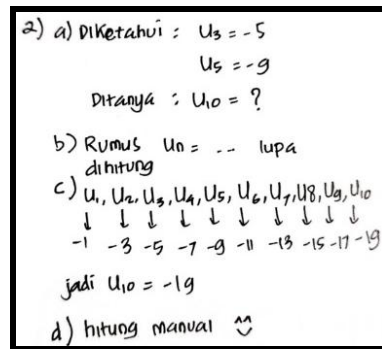 2) a) Diketahui : U3 = -5
U5 = -9
Ditanya : U10 = ?
b) Rumus Un = ... lupa
dihitung
c) U1, U2, U3, U4, U5, U6, U7, U8, U9, U10
↓ ↓ ↓ ↓ ↓ ↓ ↓ ↓ ↓ ↓
-1 -3 -5 -7 -9 -11 -13 -15 -17 -19
jadi U10 = -19
d) hitung manual ^^